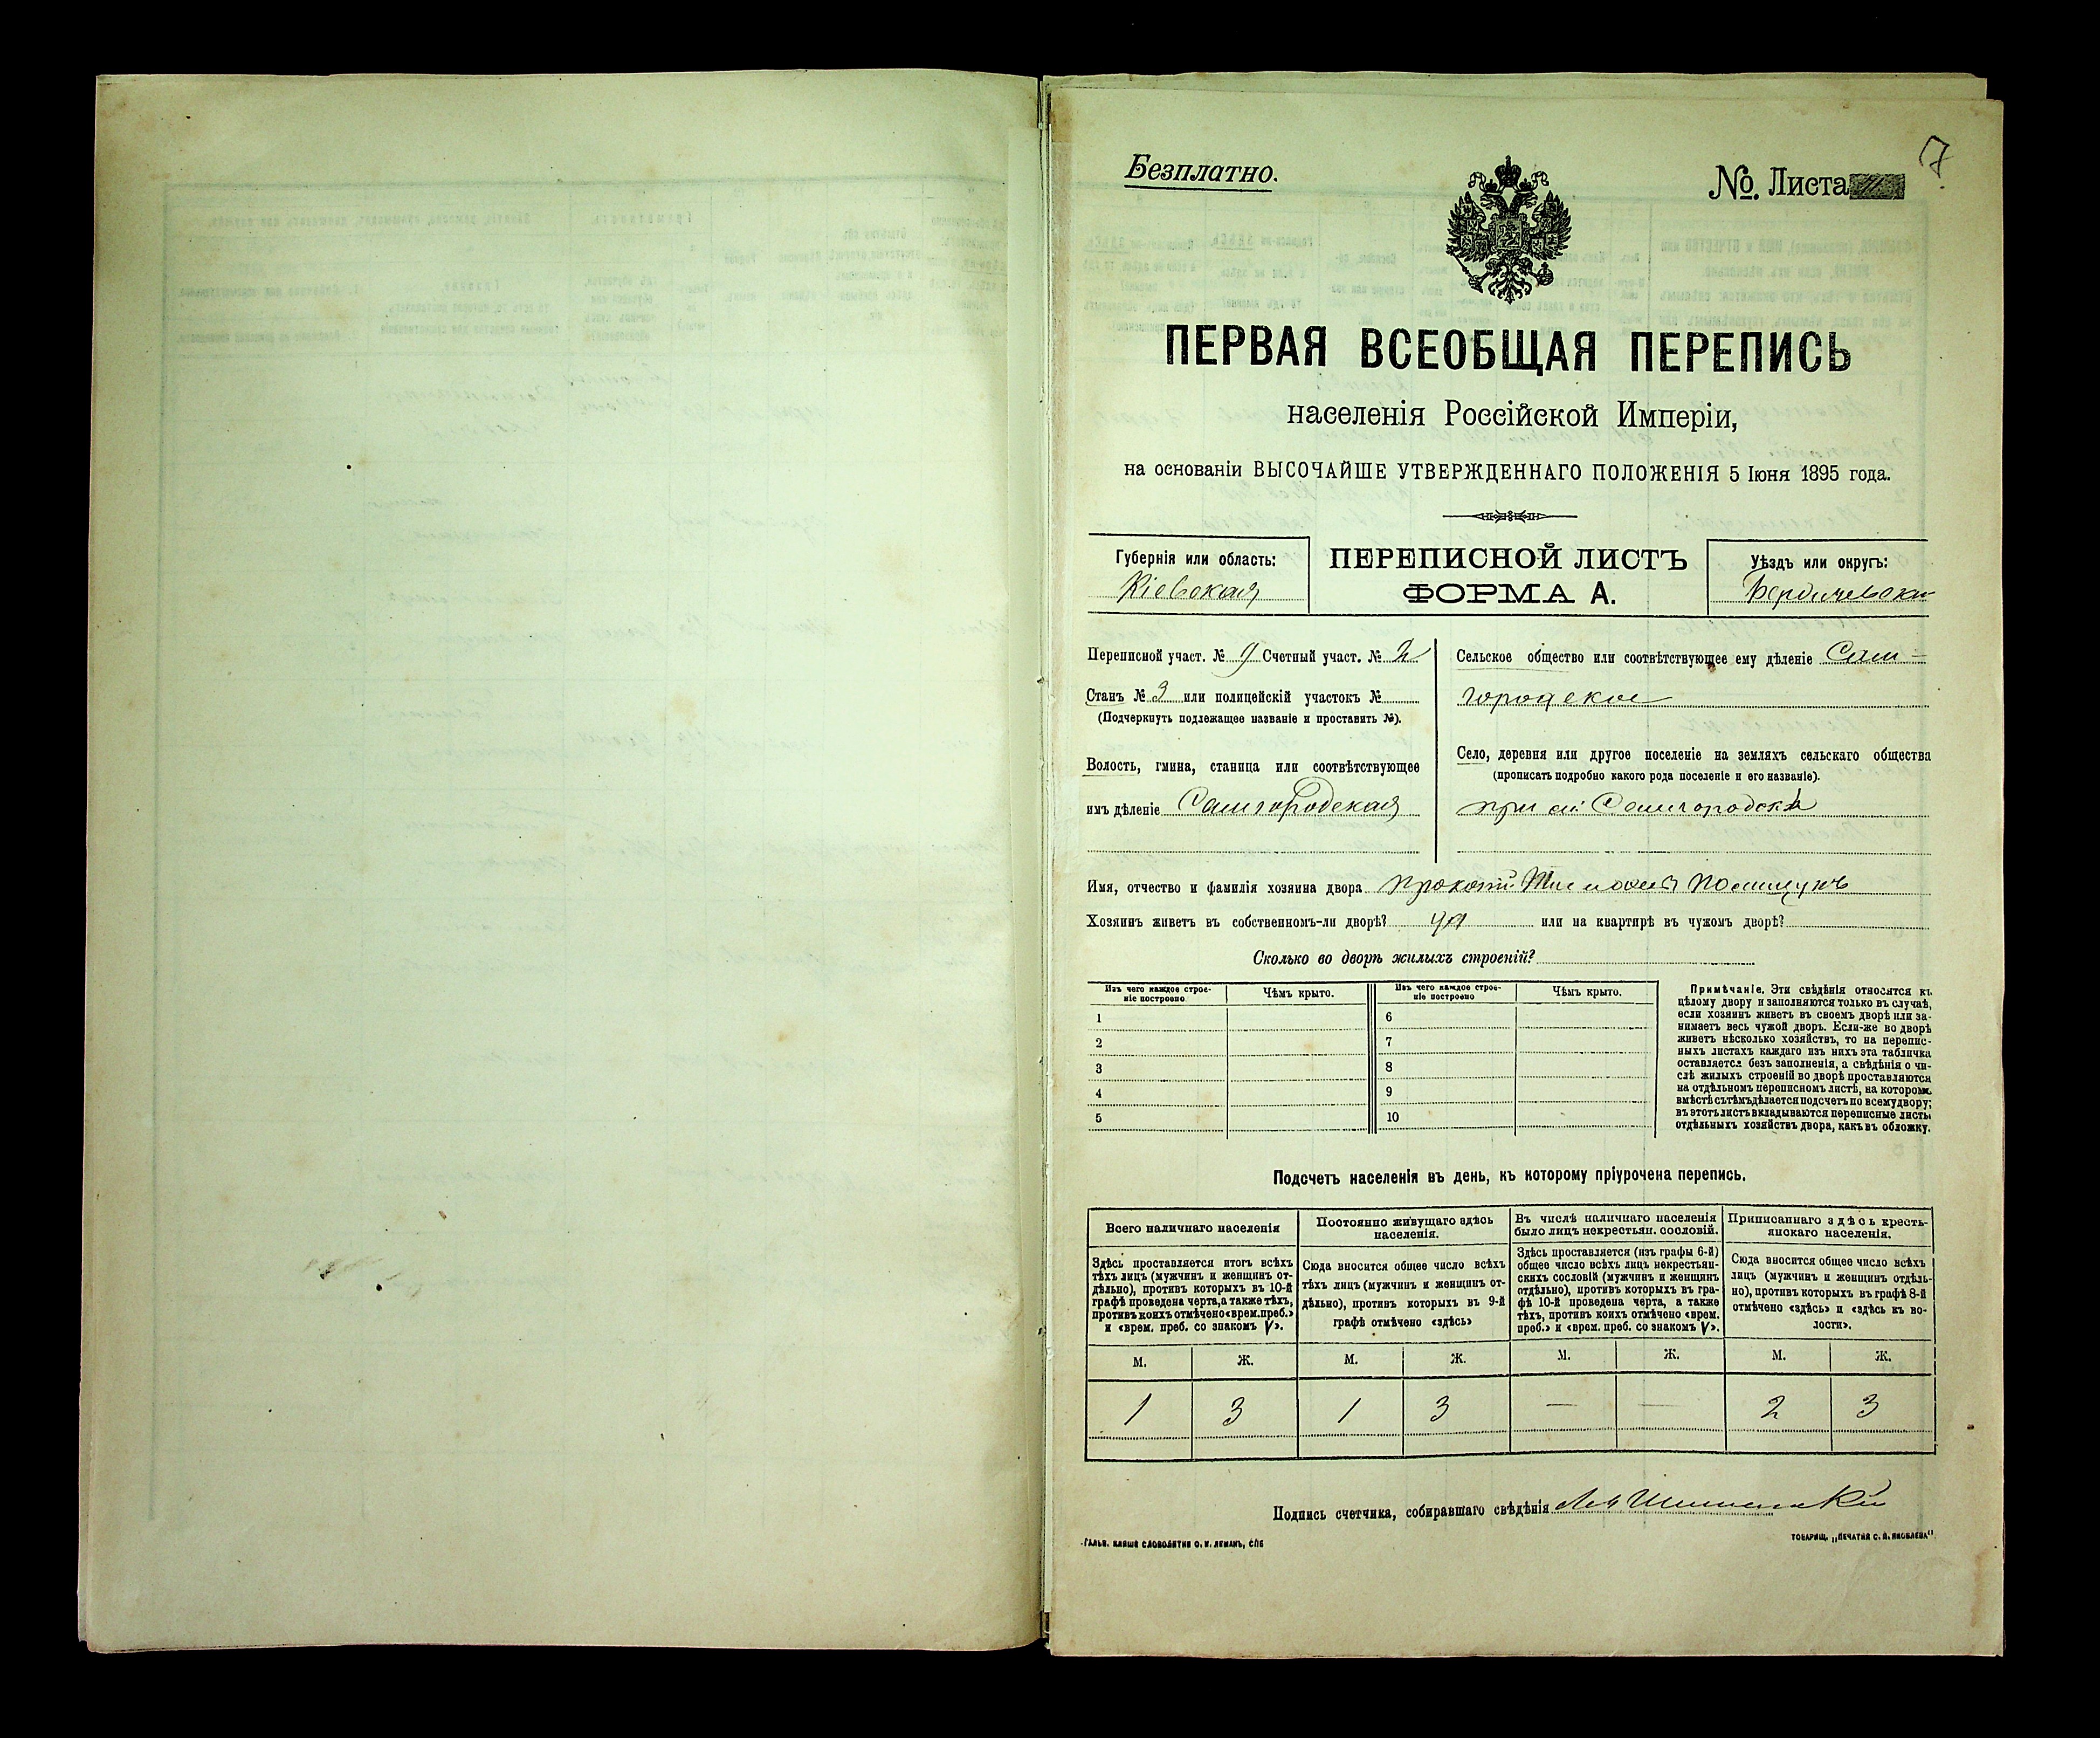 7
Безплатно.
№. Листа
ПЕРВАЯ ВСЕОБЩАЯ ПЕРЕПИСЬ
населенія Россійской Имперіи,
на основаніи ВЫСОЧАЙШЕ УТВЕРЖДЕННАГО ПОЛОЖЕНІЯ 5 Іюня 1895 года.
Губернія или область:
Кіевская
ПЕРЕПИСНОЙ ЛИСТЪ
ФОРМА А.
Уѣздъ или округъ:
Бердичевскій
Переписной участ. № 9 Счетный участ. № 2
Станъ № 3 или полицейскій участокъ №
(Подчеркнуть подлежащее названіе и проставить №).
Волость, гмина, станица или соотвѣтствующее
имъ дѣленіе Самгородская
Сельское общество или соотвѣтствующее ему дѣленіе Сам-
городское
Село, деревня или другое поселеніе на земляхъ сельскаго общества
(прописать подробно какого рода поселеніе и его названіе).
при
Имя, отчество и фамилія хозяина двора Прокопій
Хозяинъ живетъ въ собственномъ-ли дворѣ? да или на квартирѣ въ чужомъ дворѣ?
Сколько во дворѣ жилыхъ строеній?
Изъ чего каждое строе-
ніе построено
Чѣмъ крыто.
Изъ чего каждое строе-
ніе построено
Чѣмъ крыто.
1 6
2 7
3 8
4 9
5 10
Примѣчаніе. Эти свѣдѣнія относятся къ
цѣлому двору и заполняются только въ случаѣ,
если хозяинъ живетъ въ своемъ дворѣ или за-
нимаетъ весь чужой дворъ. Если-же во дворѣ
живетъ нѣсколько хозяйствъ, то на перепис-
ныхъ листахъ каждаго изъ нихъ эта табличка
оставляется безъ заполненія, а свѣдѣнія о чи-
слѣ жилыхъ строеній во дворѣ проставляются
на отдѣльномъ переписномъ листѣ, на которомъ
вмѣстѣ съ тѣмъ дѣлается подсчетъ по всему двору;
въ этотъ листъ вкладываются переписные листы
отдѣльныхъ хозяйствъ двора, какъ въ обложку.
Подсчетъ населенія въ день, къ которому пріурочена перепись.
Всего наличнаго населенія
Здѣсь проставляется итогъ всѣхъ
тѣхъ лицъ (мужчинъ и женщинъ от-
дѣльно), противъ которыхъ въ 10-й
графѣ проведена черта, а также тѣхъ,
противъ коихъ отмѣчено «врем. преб.»
и «врем. преб. со знакомъ V».
Постоянно живущаго здѣсь
населенія.
Сюда вносится общее число всѣхъ
тѣхъ лицъ (мужчинъ и женщинъ от-
дѣльно), противъ которыхъ въ 9-й
графѣ отмѣчено «здѣсь»
Въ числѣ наличнаго населенія
было лицъ некрестьян. сословій.
Здѣсь проставляется (изъ графы 6-й)
общее число всѣхъ лицъ некрестьян-
скихъ сословій (мужчинъ и женщинъ
отдѣльно), противъ которыхъ въ гра-
фѣ 10-й проведена черта, а также
тѣхъ, противъ коихъ отмѣчено «врем.
преб.» и «врем. преб. со знакомъ V».
Приписаннаго здѣсь кресть-
янскаго населенія.
Сюда вносится общее число всѣхъ
лицъ (мужчинъ и женщинъ отдѣль-
но), противъ которыхъ въ графѣ 8-й
отмѣчено «здѣсь» и «здѣсь къ во-
лости».
М. Ж. М. Ж. М. Ж. М. Ж.
1 3 1 3 — — 2 3
Подпись счетчика, собиравшаго свѣдѣнія
ГАЛЬВ. КЛИШЕ СЛОВОЛИТНИ О. И. ЛЕМАНЪ, СПБ
ТОВАРИЩ. „ПЕЧАТНЯ С. П. ЯКОВЛЕВА"